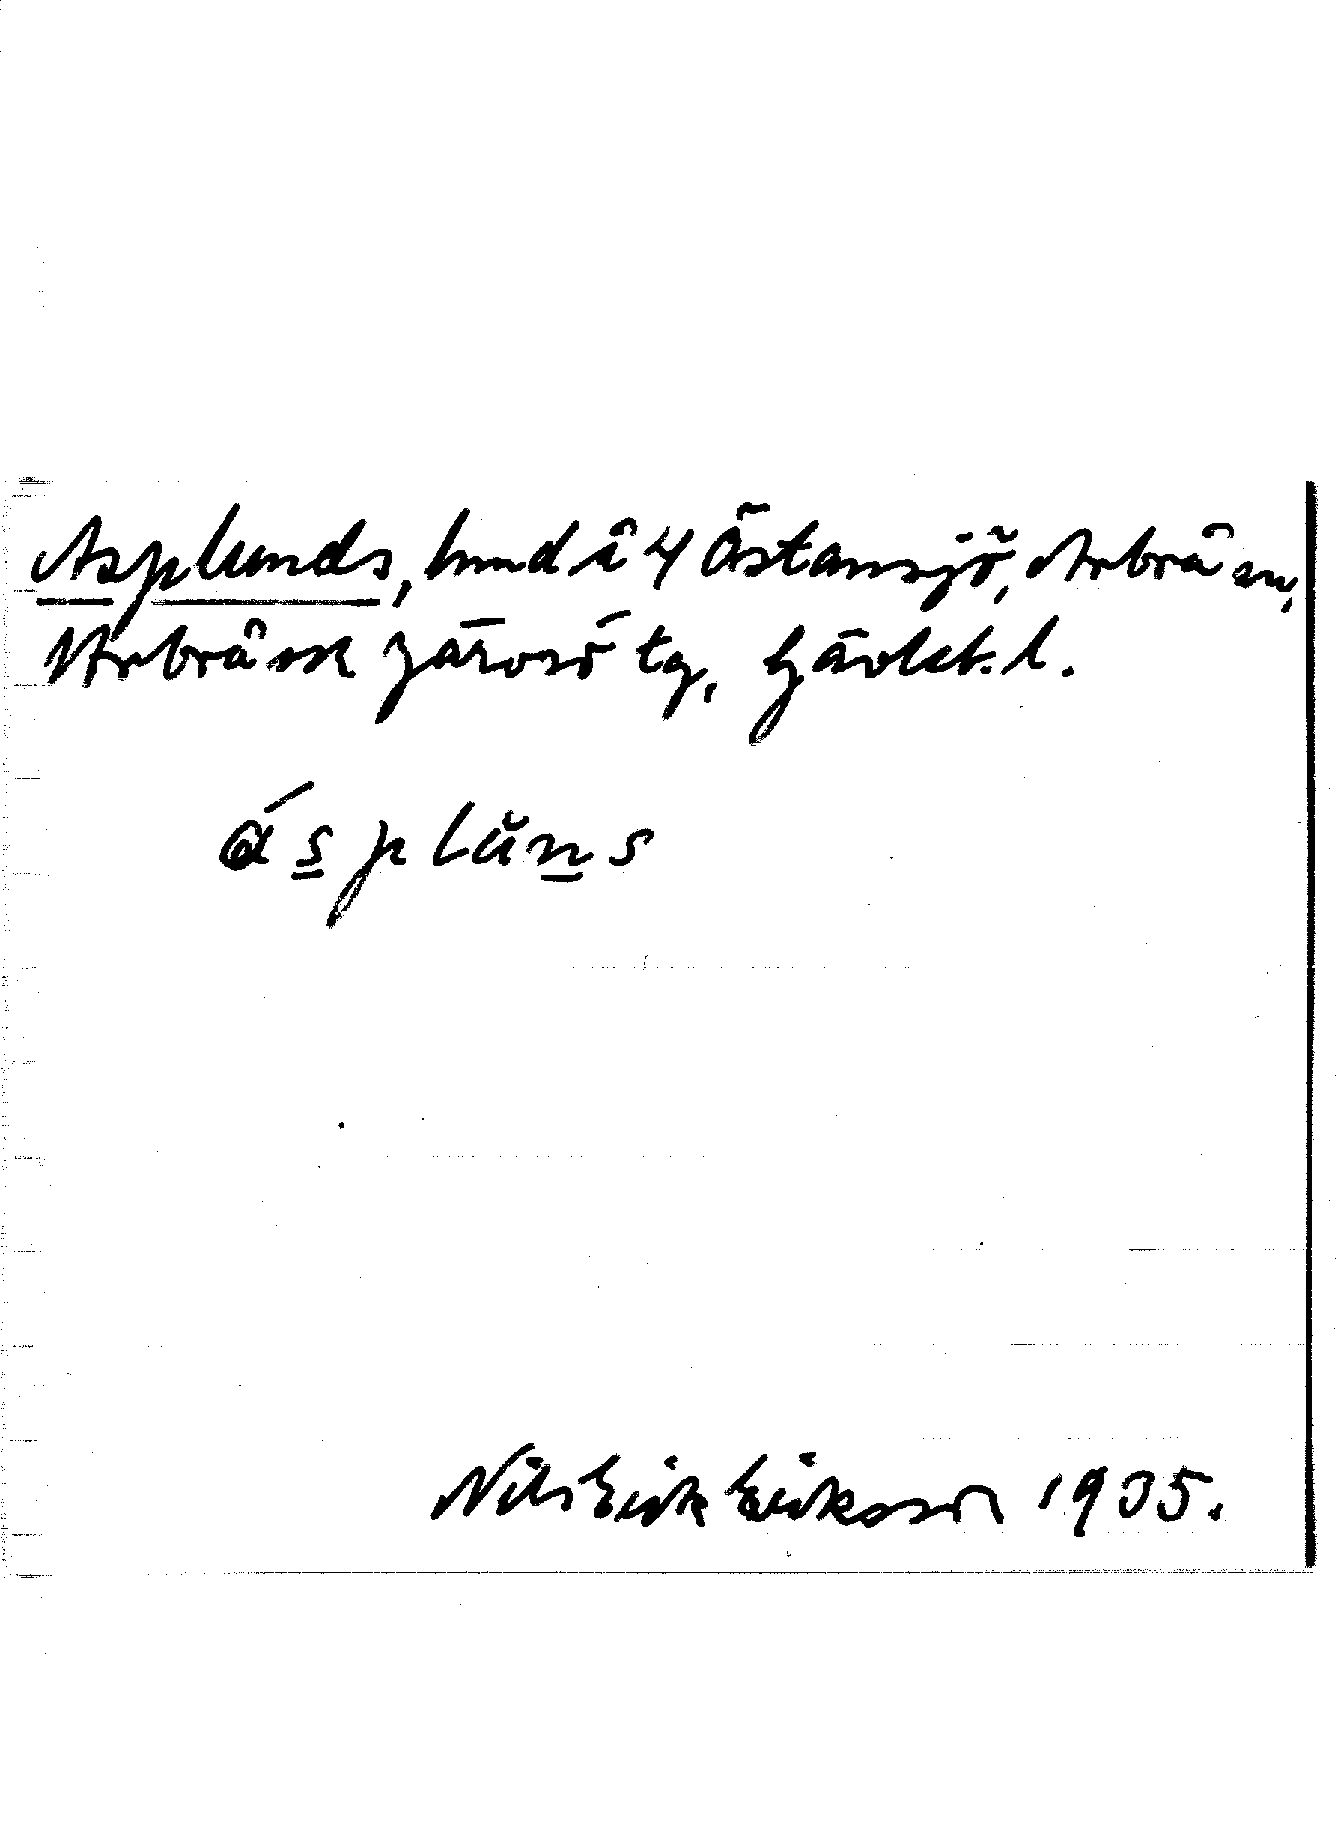 Asplunds, hmd å 4 Östansjö, Arbrå sn,
Arbrå och Järvsö tg, Gävleb. l.
ásplŭns
Nils Erik Eriksson 1935.